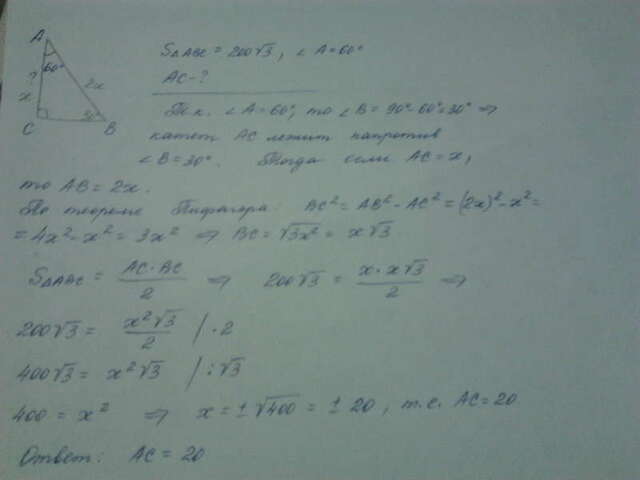 A
60°
?
x
2x
30°
C
B
S△ABC = 200√3, ∠A=60°
AC-?
Т.к. ∠A=60°, то ∠B = 90°-60°=30° ⇒
катет AC лежит напротив
∠B=30°. Тогда если AC=x,
то AB=2x.
По теореме Пифагора: BC²= AB²- AC² = (2x)²-x²=
= 4x²-x² = 3x² ⇒ BC= √3x² = x√3.
S△ABC = AC·BC / 2 ⇒ 200√3 = x·x√3 / 2 ⇒
200√3 = x²√3 / 2 / ·2
400√3 = x²√3 / :√3
400 = x² ⇒ x = ±√400 = ± 20, т.е. AC=20
Ответ: AC = 20